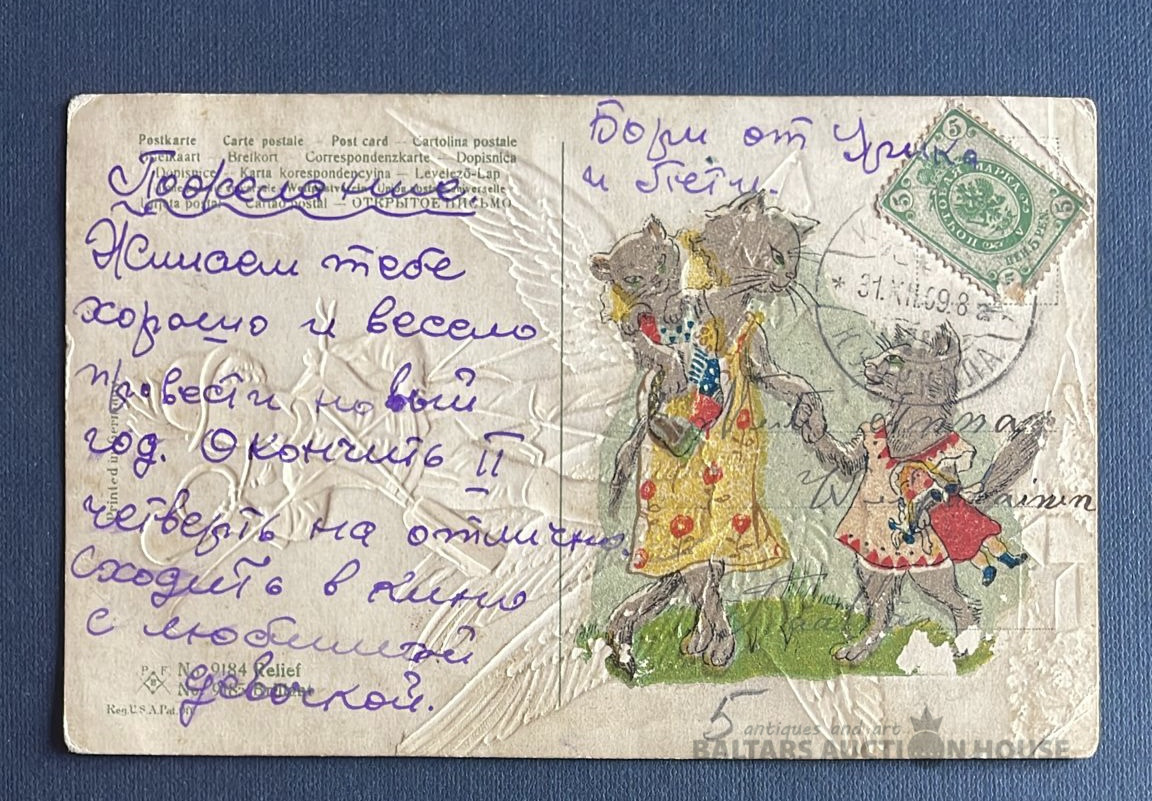 Postkarte Carte postale – Post card – Cartolina postale
Breifkort Correspondenzkarte – Dopisnica
Dopisnice Karta korespondencyina – Levelező-Lap
Cartão postal – ОТКРЫТОЕ ПИСЬМО
Пожелание
Желаем тебе
хорошо и весело
провести новый
год. Окончить II
четверть на отлично.
Сходить в кино
с любимой
девочкой.
P. F. No. 9184 Relief
No. 9185 Brillant
Reg. U.S.A. Pat. Off.
Printed in
Бори от
и Пети.
5 5 5
ПОЧТОВАЯ МАРКА
31.XII.09.8
5
antiques and art
BALTARS AUCTION HOUSE